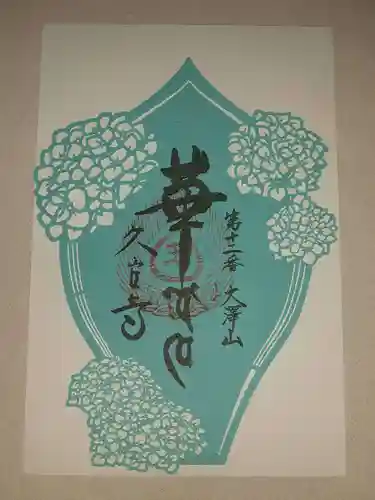 第十二番 大澤山
華曼
久昌寺